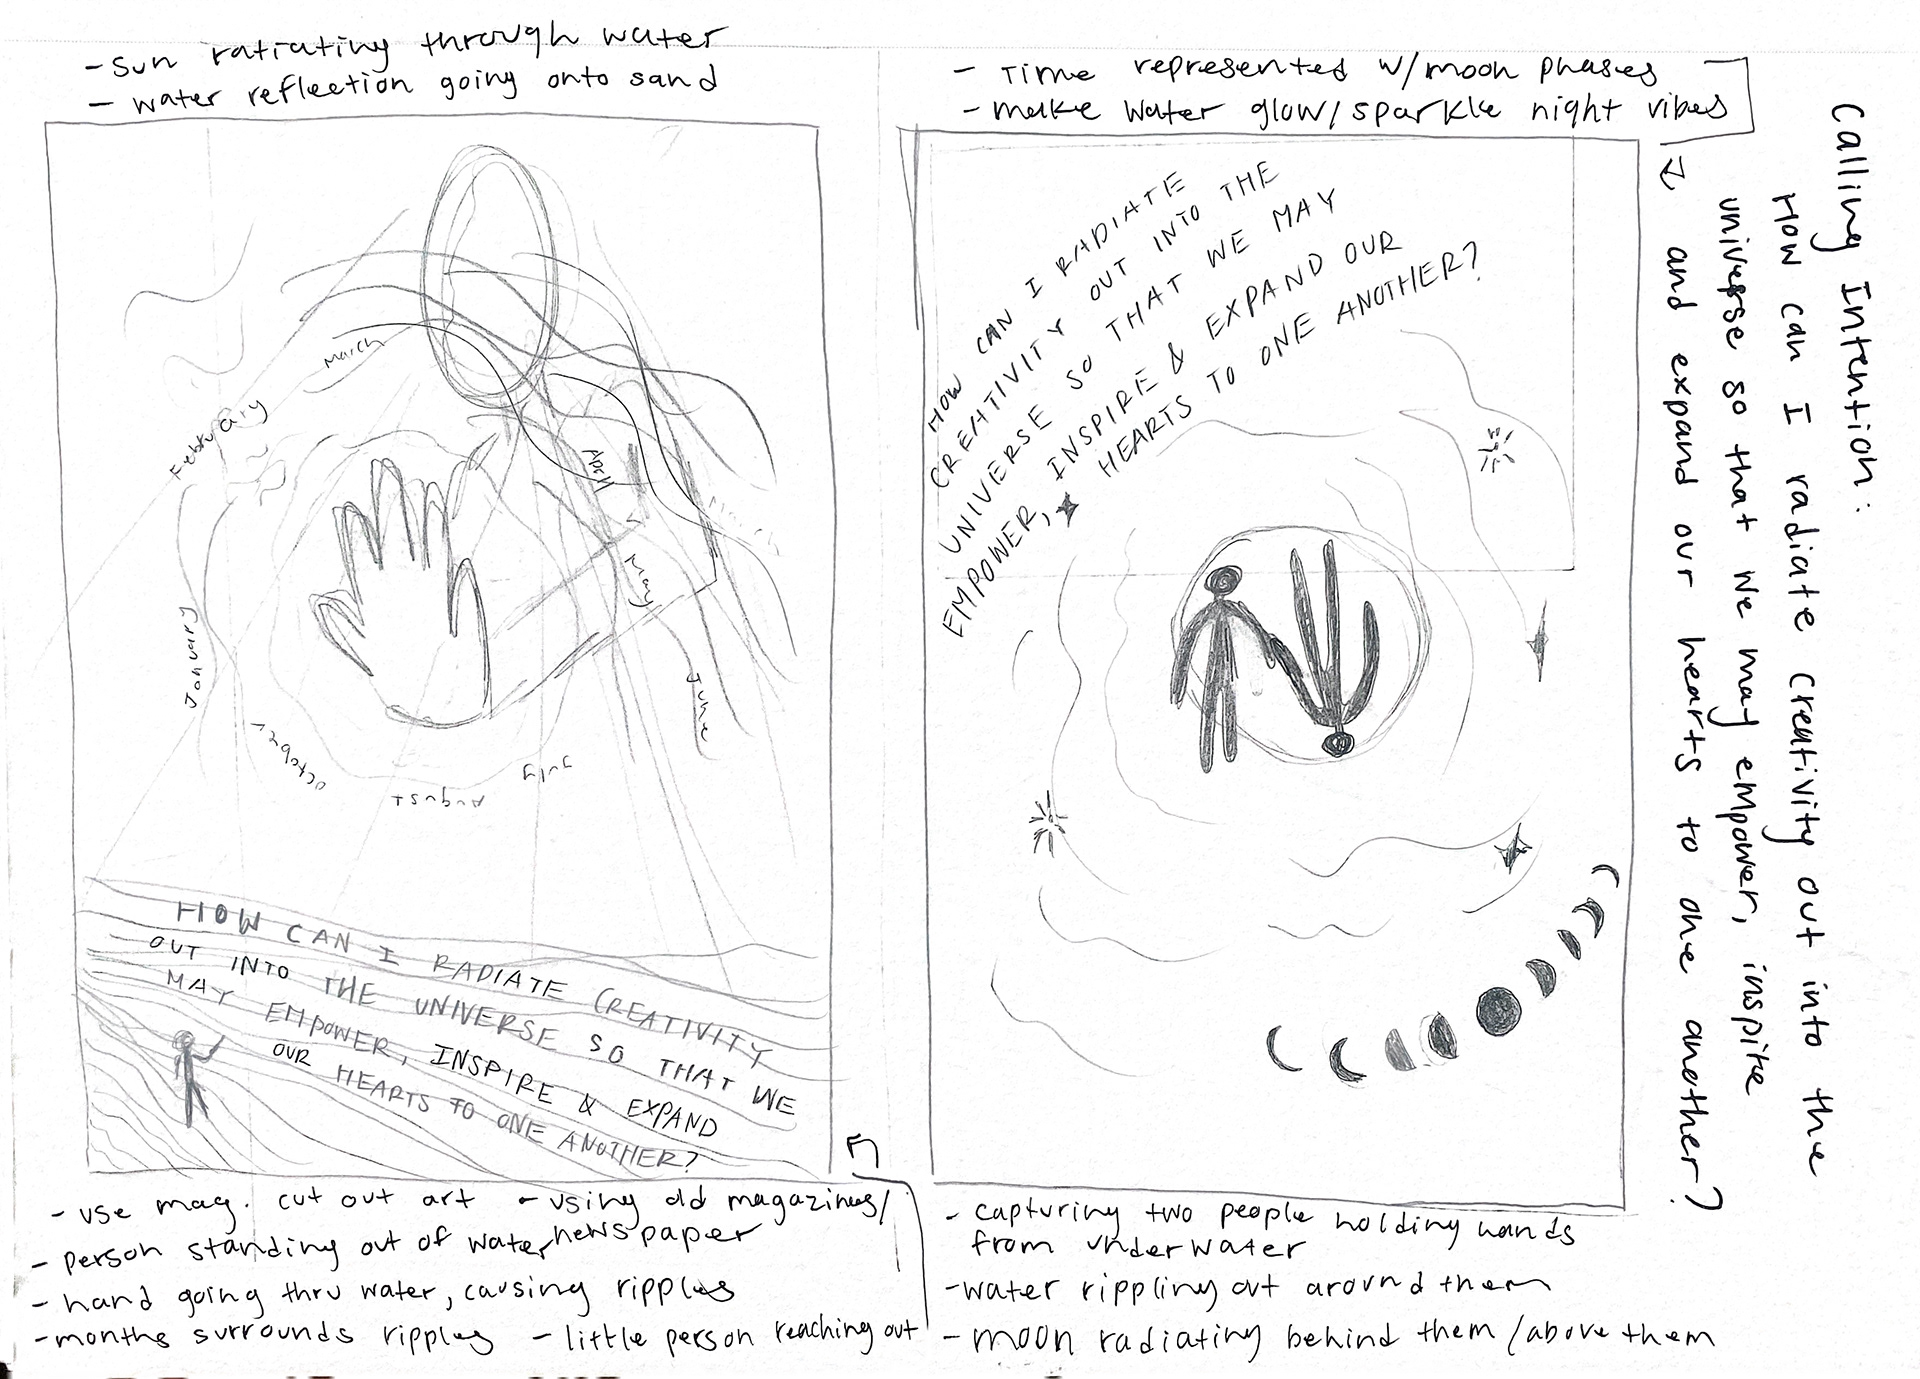 - Sun ratiating through water
- water reflection going onto sand
March
February
January
April
May
June
July
August
october
HOW CAN I RADIATE CREATIVITY
OUT INTO THE UNIVERSE SO THAT WE
MAY EMPOWER, INSPIRE & EXPAND
OUR HEARTS TO ONE ANOTHER?
- use mag. cut out art
- using old magazines/
newspaper
- person standing out of water
- hand going thru water, causing ripples
- months surrounds ripples
- little person reaching out
- Time represented w/moon phases
- make water glow/sparkle night vibes
HOW CAN I RADIATE
CREATIVITY OUT INTO THE
UNIVERSE SO THAT WE MAY
EMPOWER, INSPIRE & EXPAND OUR
HEARTS TO ONE ANOTHER?
- capturing two people holding hands
from underwater
- water rippling out around them
- moon radiating behind them/above them
Calling Intention:
How can I radiate creativity out into the
universe so that we may empower, inspire
and expand our hearts to one another?